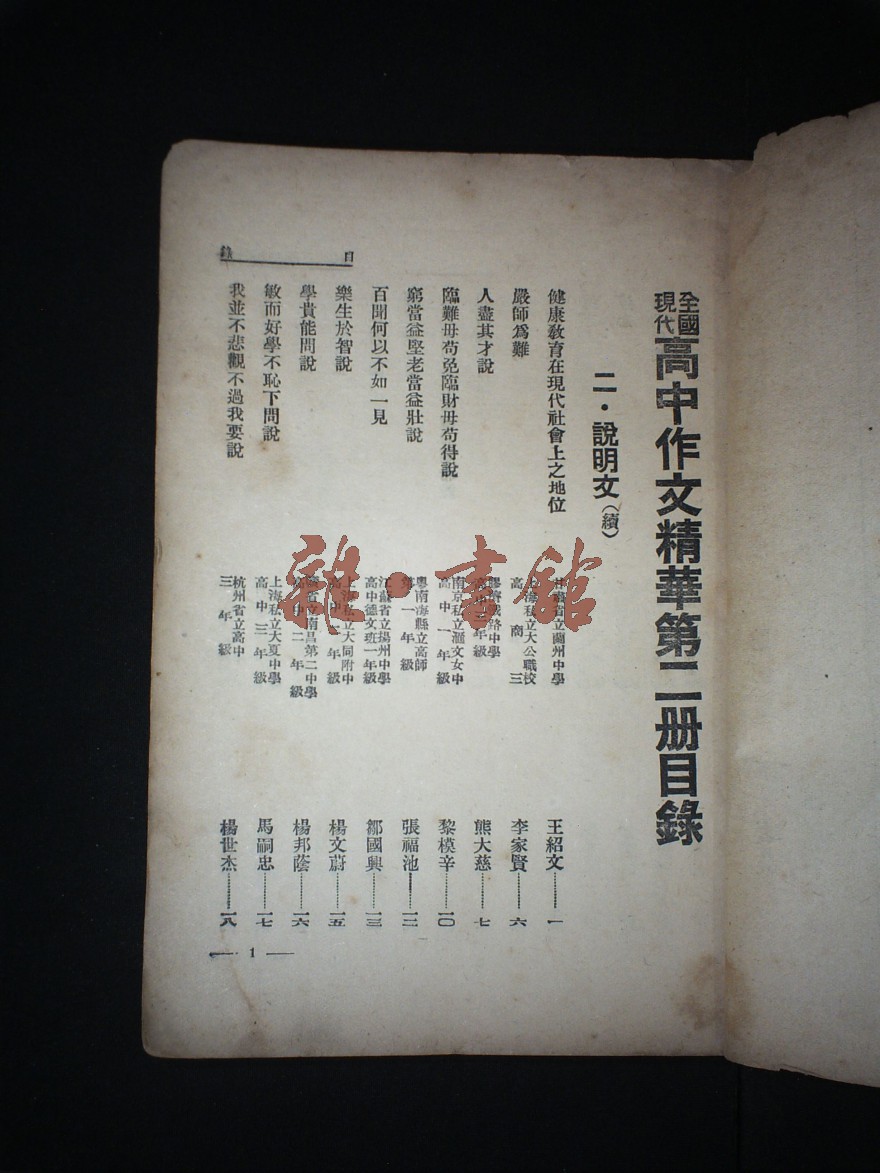 全國
現代
高中作文精華第二册目錄
二・說明文（續）
健康敎育在現代社會上之地位
甘肅省立蘭州中學
王紹文………一
嚴師爲難
上海私立大公職校
高商三
李家賢………六
人盡其才說
膠濟鐵路中學
高中三年級
熊大慈………七
臨難毋苟免臨財毋苟得說
南京私立滙文女中
高中一年級
黎模辛………一〇
窮當益堅老當益壯說
粵南海縣立高師
第一年級
張福池………一二
百聞何以不如一見
江蘇省立揚州中學
高中德文班一年級
鄒國興………一三
樂生於智說
上海私立大同附中
楊文蔚………一五
學貴能問說
省立南昌第二中學
高中二年級
楊邦蔭………一六
敏而好學不恥下問說
上海私立大夏中學
高中三年級
馬嗣忠………一七
我並不悲觀不過我要說
杭州省立高中
三年級
楊世杰………一八
目錄
— 1 —
龍・書館